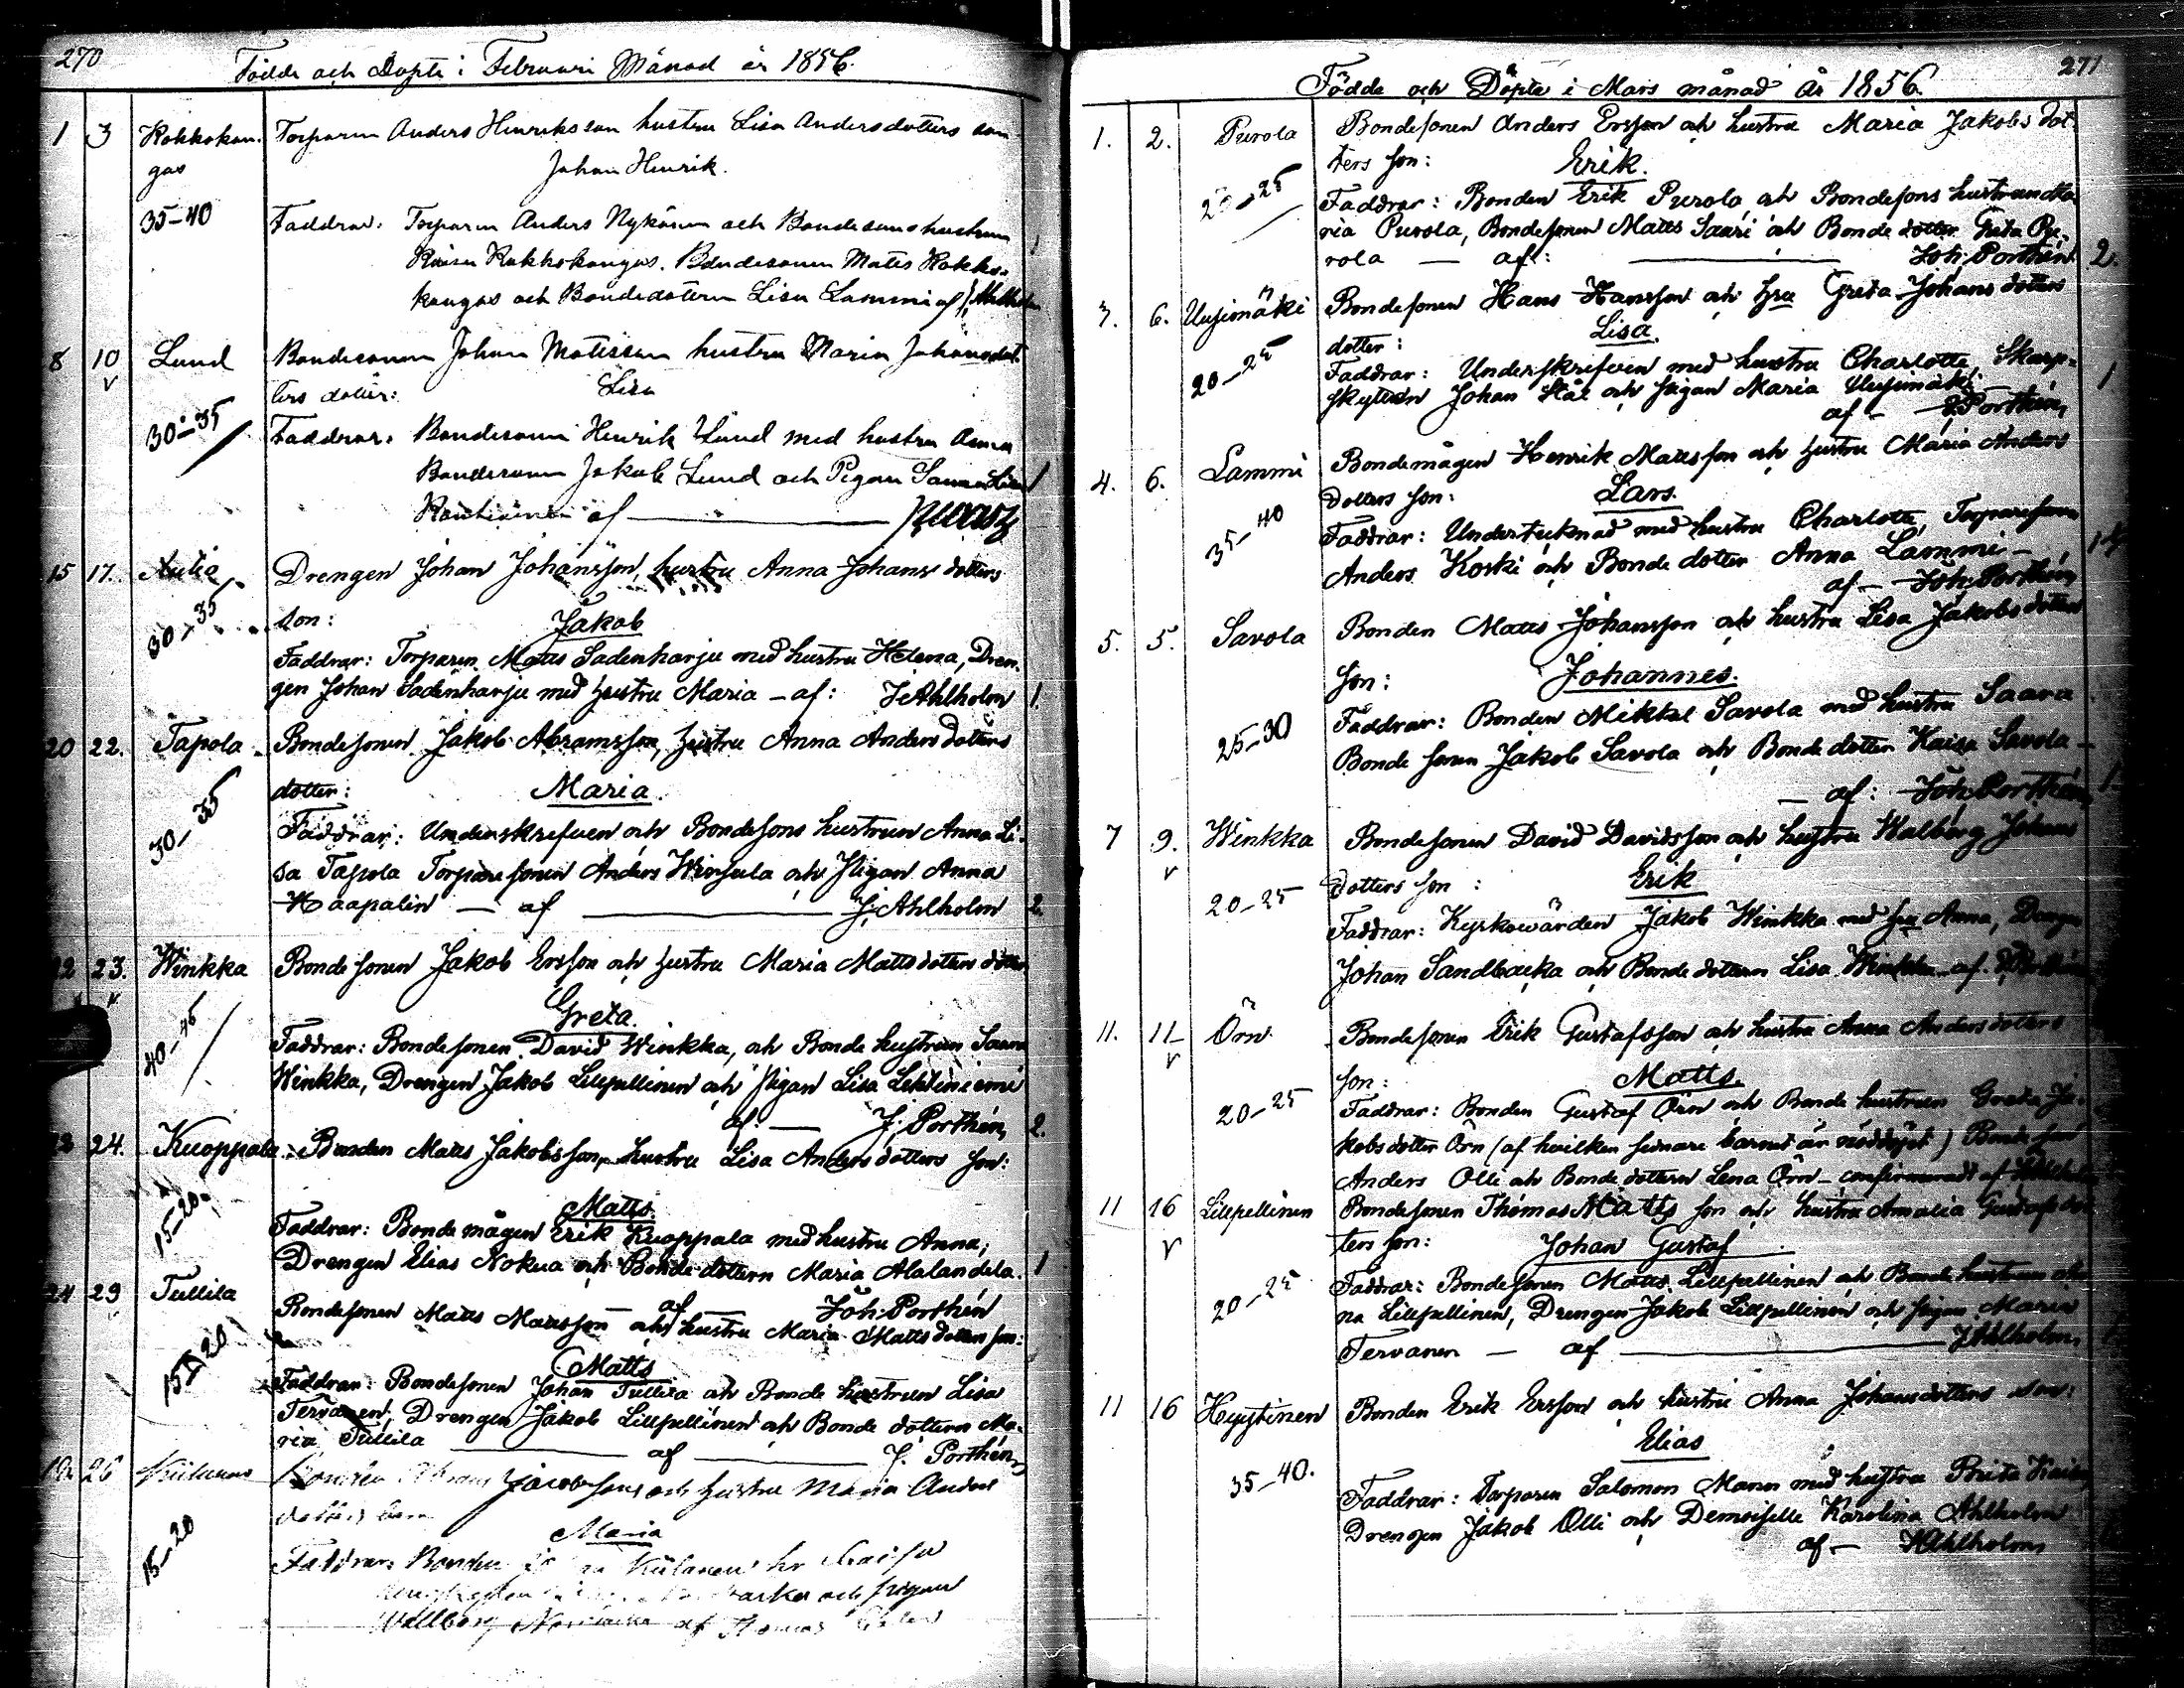 270
Födde och Döpte i Februari Månad år 1856.
1 3 Kokkokan- Torparen Anders Henriksson hustru Lisa Andersdotters son
gas Johan Henrik.
35-40 Faddrar: Torparen Anders Nykänen och Bondesons hustrun
Kaisa Kokkokangas. Bondesonen Matts Kokko-
kangas och Bondedotern Lisa Lammi af J. Ahlholm
8 10 Lund Bondesonen Johan Matisson hustru Maria Johansdot
ters dotter: Lisa
30-35 Faddrar: Bondesonen Henrik Lund med hustru Anna 1
Bondesonen Jakob Lund och Pigan Sanna Lisa
af
15 17. Drengen Johan Johansson, hustru Anna Johans dotters
30-35 son: Jakob
Faddrar: Torparen Matts Sadenharju med hustru Helena, Dren-
gen Johan Sadenharju med hustru Maria - af: J Ahlholm 1.
20 22. Tapola Bondesonen Jakob Abramsson, hustru Anna Anders dotters
dotter: Maria.
30-35 Faddrar: Underskrefven och Bondesons hustrun Anna Li-
sa Tapola Torparesonen Anders Wirsula och Pigan Anna
Haapalin — af — J. Ahlholm 2.
22 23. Winkka Bondesonen Jakob Ersson och hustru Maria Matts dotters dotter
Greta.
40-45 Faddrar: Bondesonen David Winkka, och Bonde hustrun Saara
Winkka, Drengen Jakob Lillpellinen och Pigan Lisa Lehtiniemi
af — J. Porthén, 2.
24. Kuoppala Bonden Matts Jakobsson, hustru Lisa Anders dotters son:
15-20 Matts.
Faddrar: Bonde mågen Erik Kuoppala med hustru Anna,
Drengen Elias Nokua och Bonde dottern Maria Alalandela. 1
af Joh: Porthén
24 29 Tullila Bondesonen Matts Mattsson och hustru Maria Matts dotters son:
Matts
15-20 Faddrar: Bondesonen Johan Tullila och Bonde hustrun Lisa
Tervanen, Drengen Jakob Lillpellinen och Bonde dottern Ma-
ria Tullila — af — J. Porthén,
26 Jacobsson och hustru Maria Anders
dotters
Maria
15-20 Faddrar: Bonden
och pigan
Wallborg af Thomas
271
Födde och Döpte i Mars månad år 1856.
1. 2. Purola Bondesonen Anders Ersson och hustru Maria Jakobs dot-
ters son: Erik.
20-25 Faddrar: Bonden Erik Purola och Bondesons hustrun Ma-
ria Purola, Bondesonen Matts Saari och Bonde dotter Greta Pu-
rola — af: — Joh: Porthén. 2.
3. 6. Uusimäki Bondesonen Hans Hansson och hru Greta Johans dotters
dotter: Lisa.
20-25 Faddrar: Underskrifven med hustru Charlotte, Skarp-
skytten Johan Stål och pigan Maria Uusimäki 1
af - J. Porthén,
4. 6. Lammi Bondemågen Henrik Mattsson och hustru Maria Anders
dotters son: Lars.
35-40 Faddrar: Undertecknad med hustru Charlotte, Torparesonen
Anders Koski och Bonde dotter Anna Lammi -
af - Joh: Porthén,
5. 5. Savola Bonden Matts Johansson och hustru Lisa Jakobs dotters
son: Johannes.
25-30 Faddrar: Bonden Mikkel Savola med hustru Saara
Bonde sonen Jakob Savola och Bonde dotter Kaisa Savola -
— af: Joh: Porthén, 1.
7 9. Winkka Bondesonen David Davidsson och hustru Walborg Johans
dotters son : Erik
20-25 Faddrar: Kyrkowärden Jakob Winkka med hru Anna, Drengen
Johan Sandbacka och Bonde dottern Lisa Winkka af.
11. 11 Örn Bondesonen Erik Gustafsson och hustru Anna Anders dotters
son: Matts.
20-25 Faddrar: Bonden Gustaf Örn och Bonde hustrun Greta Ja-
kobs dotter Örn (af hvilken sednare barnet är nöddöpt) Bonde son
Anders Olli och Bonde dottern Lena Örn - confirmeradt af
11 16 Lillpellinen Bondesonen Thomas Matts son och hustru Amalia Gustafs dot
ters son: Johan Gustaf
20-25 Faddrar: Bondesonen Matts Lillpellinen och Bonde hustrun An-
na Lillpellinen, Drengen Jakob Lillpellinen och pigan Maria
Tervanen — af — J Ahlholm,
11 16 Hyytinen Bonden Erik Ersson och hustru Anna Johansdotters son:
Elias
35-40. Faddrar: Torparen Salomon Manen med hustru Brita Kaisa,
Drengen Jakob Olli och Demoiselle Karolina Ahlholm
af — J Ahlholm,